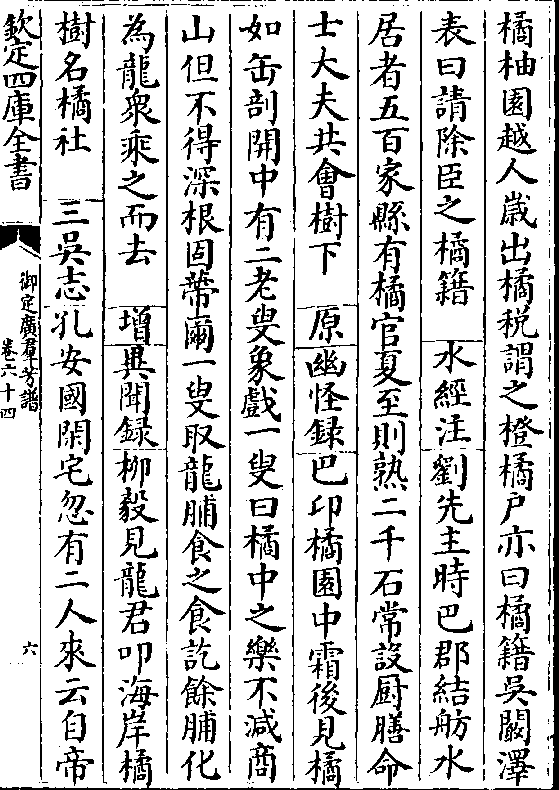 橘柚園越人歳出橘税謂之橙橘户亦曰橘籍吳闞澤
表曰請除臣之橘籍　水經注劉先主時巴郡結舫水
居者五百家縣有橘官夏至則熟二千石常設厨膳命
士大夫共會樹下　原幽怪録巴卭橘園中霜後見橘
如缶剖開中有二老叟象戲一叟曰橘中之樂不減商
山但不得深根固蔕爾一叟取龍脯食之食訖餘脯化
為龍衆乘之而去　增異聞録柳毅見龍君叩海岸橘
樹名橘社　三吳志孔安國閑宅忽有二人來云白帝
欽定四庫全書
御定廣羣芳譜
卷六十四
六